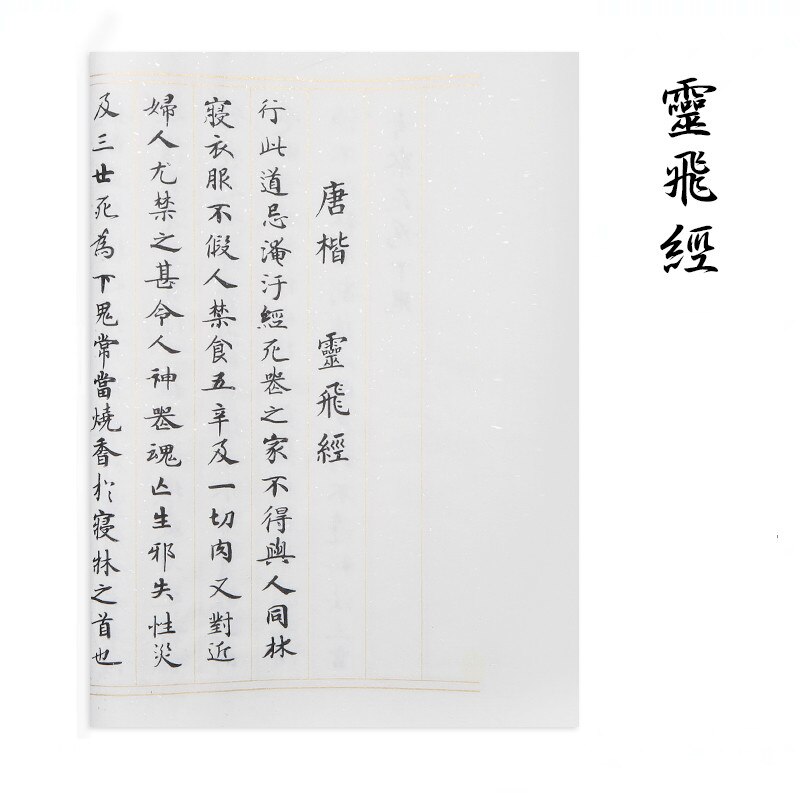 靈飛經
唐楷 靈飛經
行此道忌淹汙經死喪之家不得與人同牀
寢衣服不假人禁食五辛及一切肉又對近
婦人尤禁之甚令人神喪魂亡生邪失性災
及三世死為下鬼常當燒香於寢牀之首也